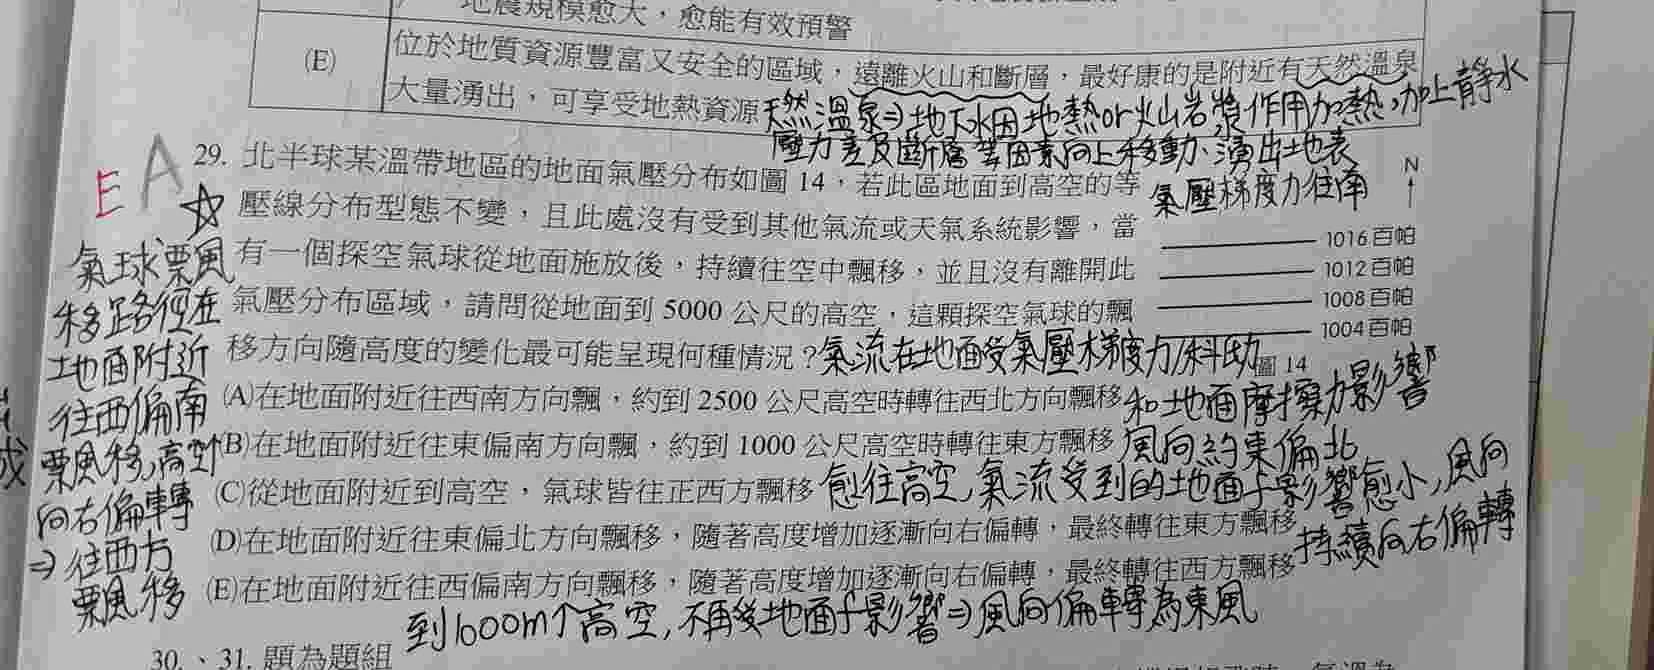 地震規模愈大，愈能有效預警
(E)
位於地質資源豐富又安全的區域，遠離火山和斷層，最好康的是附近有天然溫泉
大量湧出，可享受地熱資源
天然溫泉⇒地下水因地熱or火山岩漿作用加熱，加上靜水
壓力差及斷層等因素向上移動、湧出地表
E A
29. 北半球某溫帶地區的地面氣壓分布如圖 14，若此區地面到高空的等
壓線分布型態不變，且此處沒有受到其他氣流或天氣系統影響，當
有一個探空氣球從地面施放後，持續往空中飄移，並且沒有離開此
氣壓分布區域，請問從地面到 5000 公尺的高空，這顆探空氣球的飄
移方向隨高度的變化最可能呈現何種情況？
氣壓梯度力往南
N
1016 百帕
1012 百帕
1008 百帕
1004 百帕
圖 14
氣流在地面受氣壓梯度力/科氏力
和地面摩擦力影響
風向約東偏北
愈往高空，氣流受到的地面影響愈小，風向
持續向右偏轉
(A)在地面附近往西南方向飄，約到 2500 公尺高空時轉往西北方向飄移
(B)在地面附近往東偏南方向飄，約到 1000 公尺高空時轉往東方飄移
(C)從地面附近到高空，氣球皆往正西方飄移
(D)在地面附近往東偏北方向飄移，隨著高度增加逐漸向右偏轉，最終轉往東方飄移
(E)在地面附近往西偏南方向飄移，隨著高度增加逐漸向右偏轉，最終轉往西方飄移
到1000m↑高空，不再受地面影響⇒風向偏轉為東風
氣球飄
移路徑在
地面附近
往西偏南
飄移，高空↑
向右偏轉
⇒往西方
飄移
30.、31. 題為題組